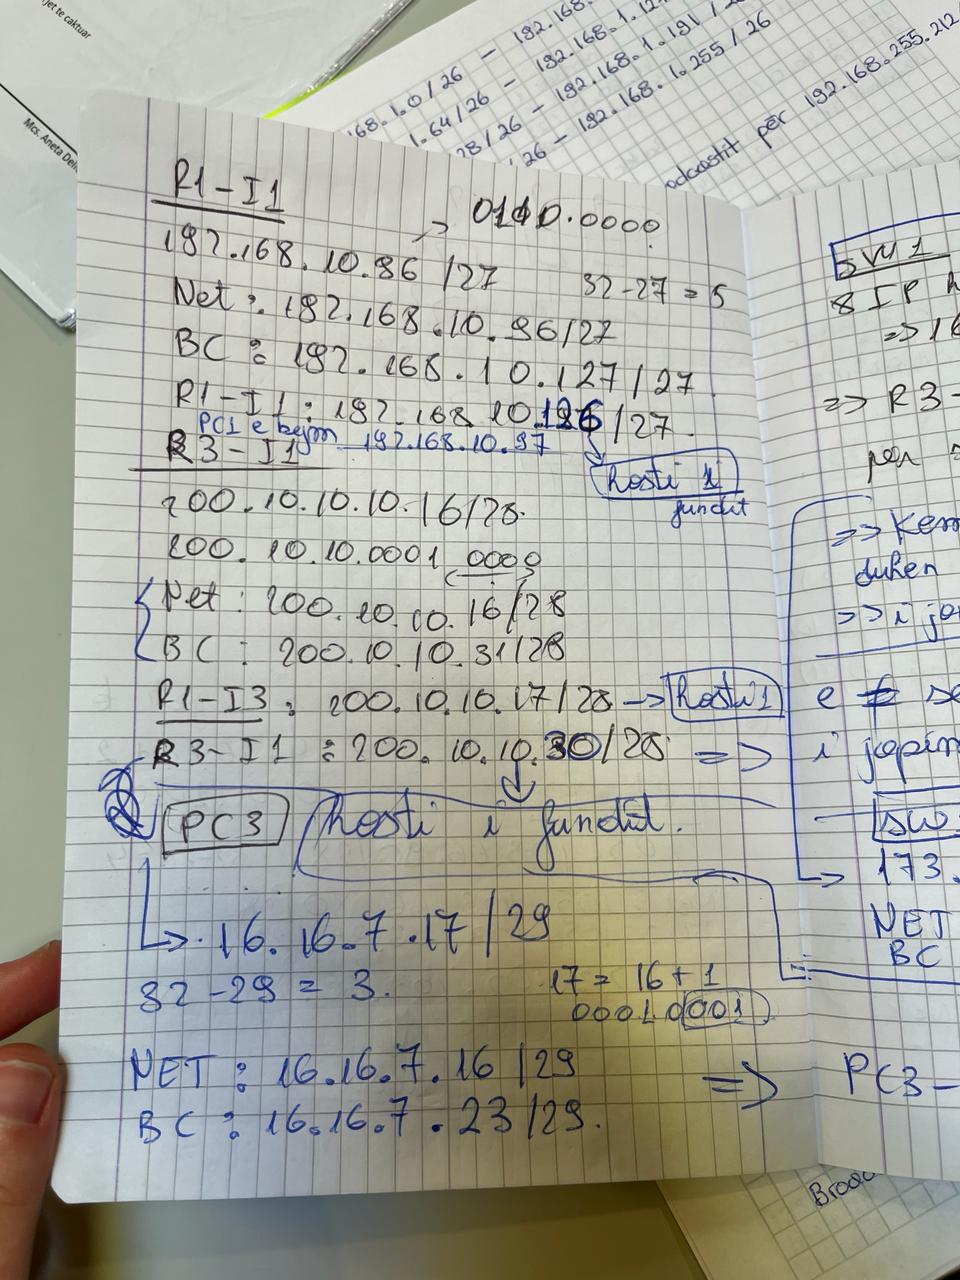 jet te caktuar
Mcs. Aneta Deli
168.1.0/26 - 192.168.
1.64/26 - 192.168.1.12
28/26 - 192.168.1.191/2
/26 - 192.168.1.255/26
adcastit për 192.168.255.212/
R1-I1
→ 0110.0000
192.168.10.96/27 32-27=5
Net: 192.168.10.96/27
BC: 192.168.10.127/27
R1-I1: 192.168.10.126/27.
PC1 e bejm 192.168.10.97
hosti i fundit
R3-I1
200.10.10.10.16/28.
200.10.10.0001 0000
Net: 200.10.10.16/28
BC: 200.10.10.31/28
R1-I3: 200.10.10.17/28 → hosti 1
R3-I1: 200.10.10.30/28 =>
PC3 hosti i fundit.
→ 16.16.7.17/29
32-29=3. 17=16+1
00010001
NET: 16.16.7.16/29
BC: 16.16.7.23/29.
=> PC3-
SW1
8 IP h
=> 16
=> R3-
për
=> Kem
duhen
=> i ja
e se
i japim
SW
173.
NET
BC
Broad